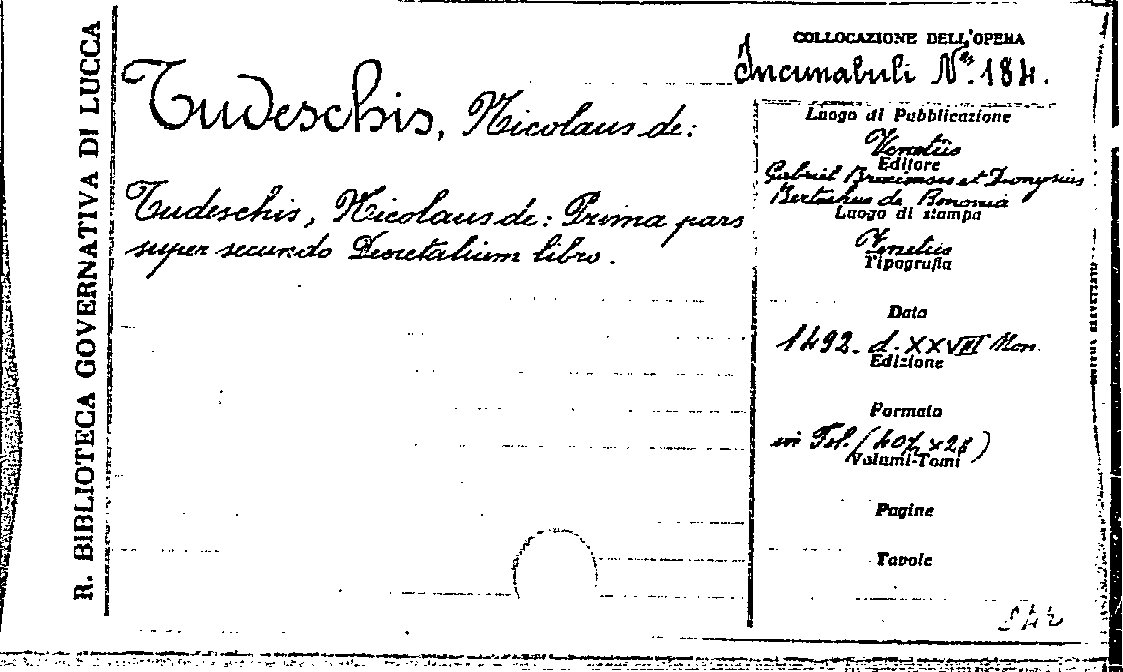 R. BIBLIOTECA GOVERNATIVA DI LUCCA
COLLOCAZIONE DELL'OPERA
Incunabuli N.ⁿ 184.
Tudeschis, Nicolaus de:
Tudeschis, Nicolaus de: Prima pars
super secundo Decretalium libro.
Luogo di Pubblicazione
Venetiis
Editore
Gabriel Brixiensis et Dionysius
Bertochus de Bononia
Luogo di stampa
Venetiis
Tipografia
Data
1492. d. XXVIII Nov.
Edizione
Formato
in Fol. (40½ x 28)
Volumi-Tomi
Pagine
Tavole